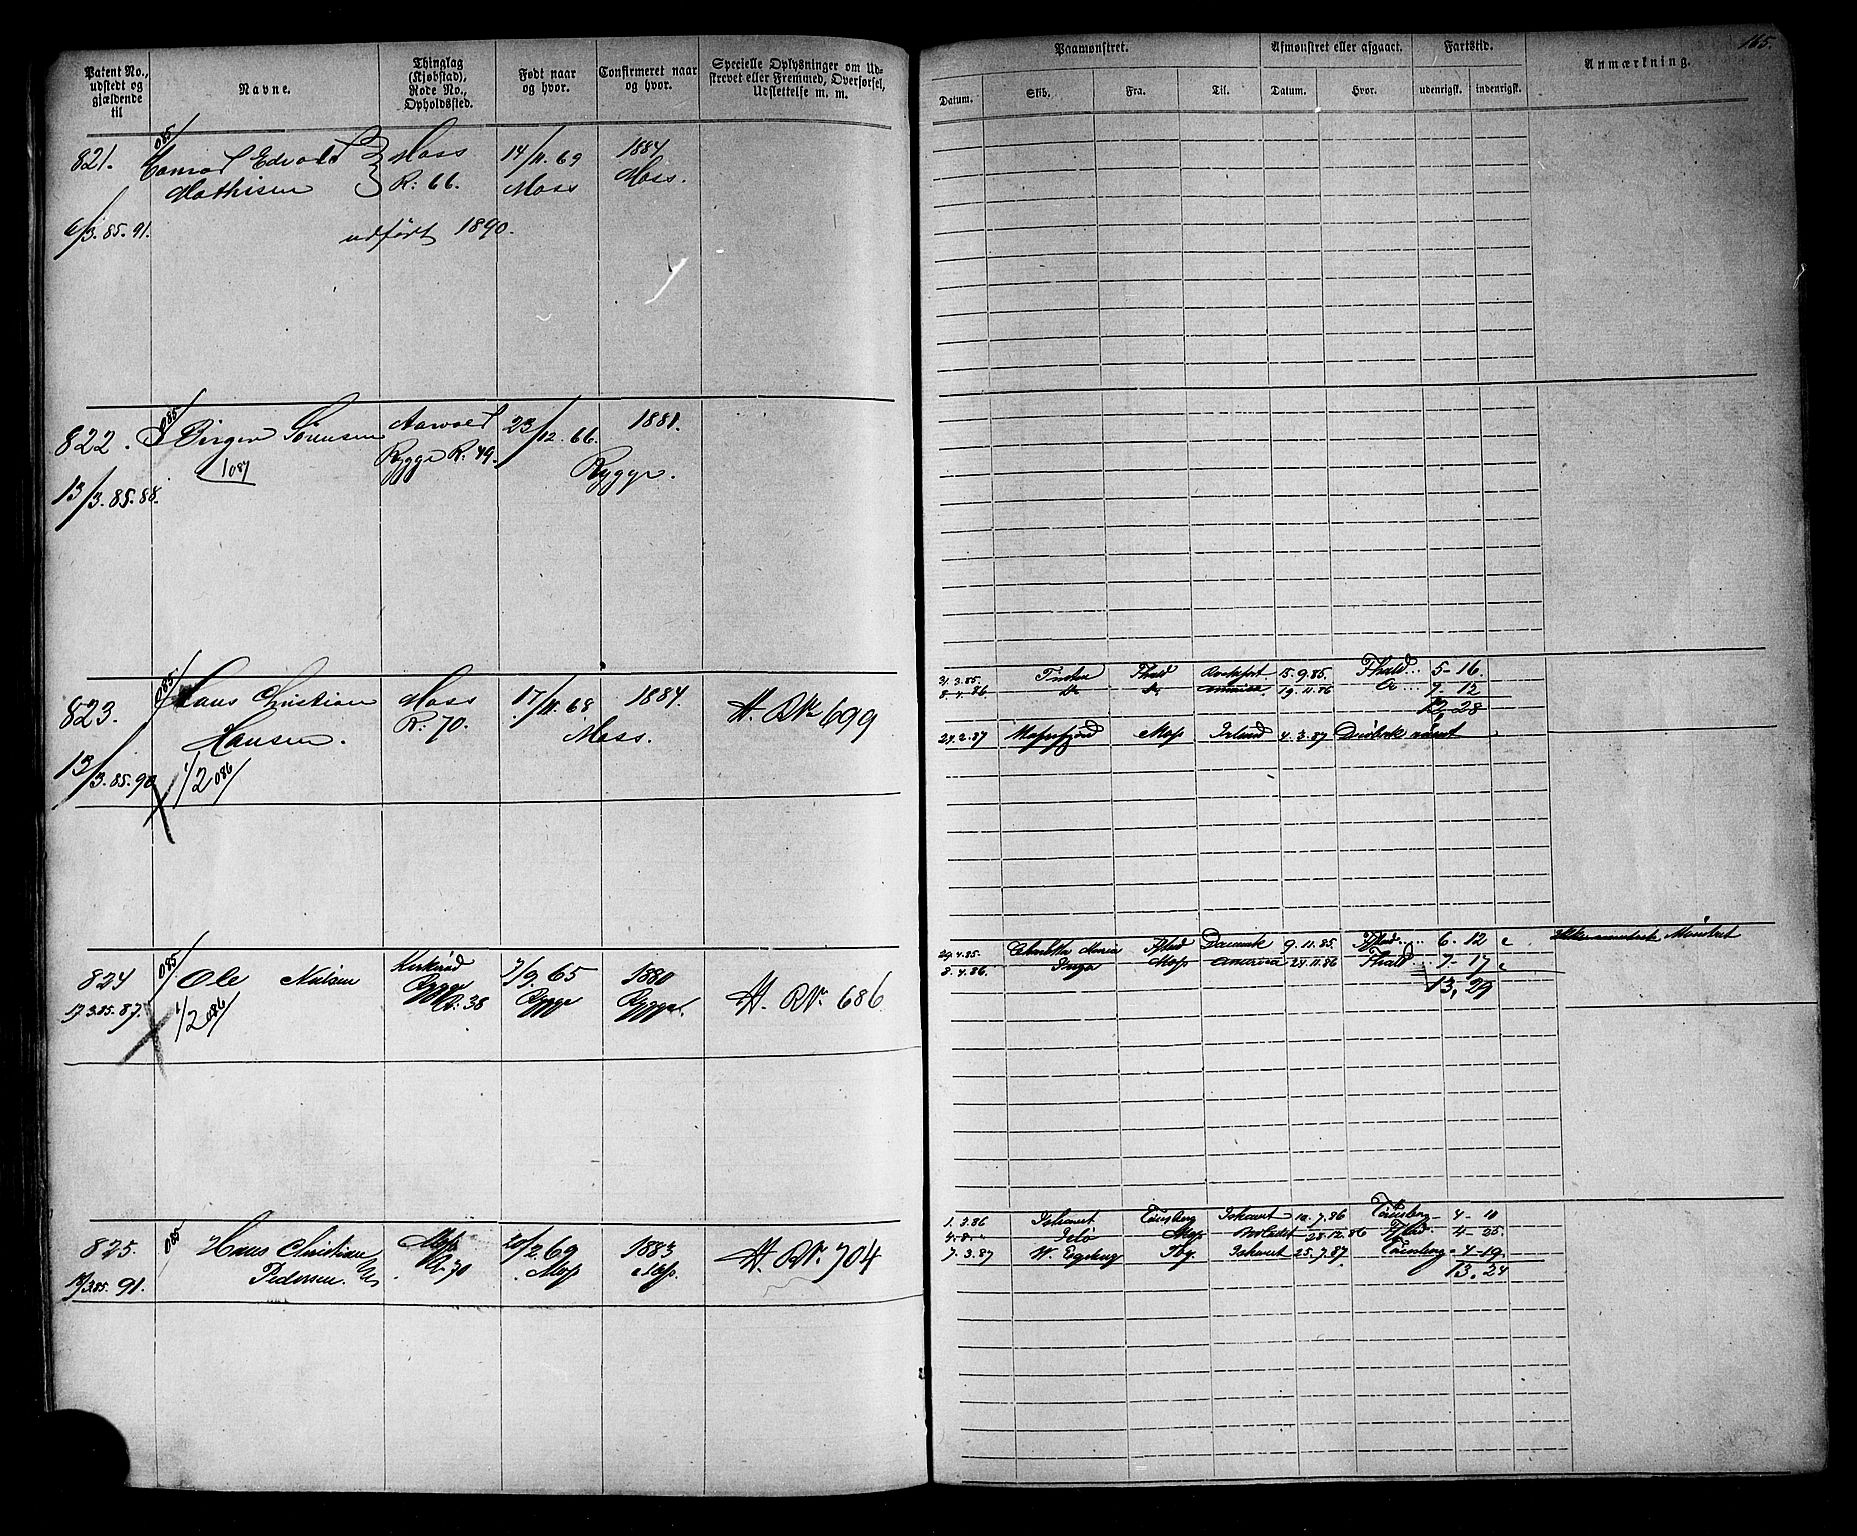 165.
Patent No., udstedt og gjældende til
Navne.
Thinglag (Kjøbstad), Rode No., Opholdssted.
Født naar og hvor.
Confirmeret naar og hvor.
Specielle Oplysninger om Udskrevet eller Fremmed, Overførsel, Udslettelse m. m.
Paamønstret.
Afmønstret eller afgaaet.
Fartstid.
Anmærkning.
Datum. Skib. Fra. Til. Datum. Hvor. udenrigsk. indenrigsk.
085/
821. Conrad Edvald Moss 14/11.69 1884
Mathisen R: 66. Moss Moss.
6/3.85.91. udført 1890.
085/
822. Birger Sørensen Aarvold 23/12.66. 1881.
1087 Rygge R. 49. Rygge.
13/3.85.88.
085/
823. Hans Christian Moss 17/11.68 1884. H. RNr 699
Hansen. R: 70. Moss.
13/3.85.90 1/2 086/
31.3.85. 15.9.85. Fhald.. 5-16
8.4.86 Do Do 19.11.86 9-12
28
27.2.87 Mossefjord Moss 4.3.87
085/
824 Ole Nielsen 7/9 65 1880 H. RNr. 686
17.3.85.87. 1/2 086/ Rygge R: 38 Rygge Rygge.
29.4.85. Maria Danmark 9.11.85. 6. 12
8.4.86. Inga Moss America 24.11.86 Fhald.. 7- 17
13, 29
085
825. Hans Christian Moss 20/2 69 1883 H. RNr. 704
Pedersen. R. 70 Moss Moss.
17/3.85. 91.
1.3.86 Ishavet Tønsberg Ishavet 10.7.86 Tønsberg 4- 10
4.8. " Jelø Moss 28.12.86 4-25.
7.3.87 Tbg. Ishavet 25.7.87. Tønsberg 4-19.
13. 24